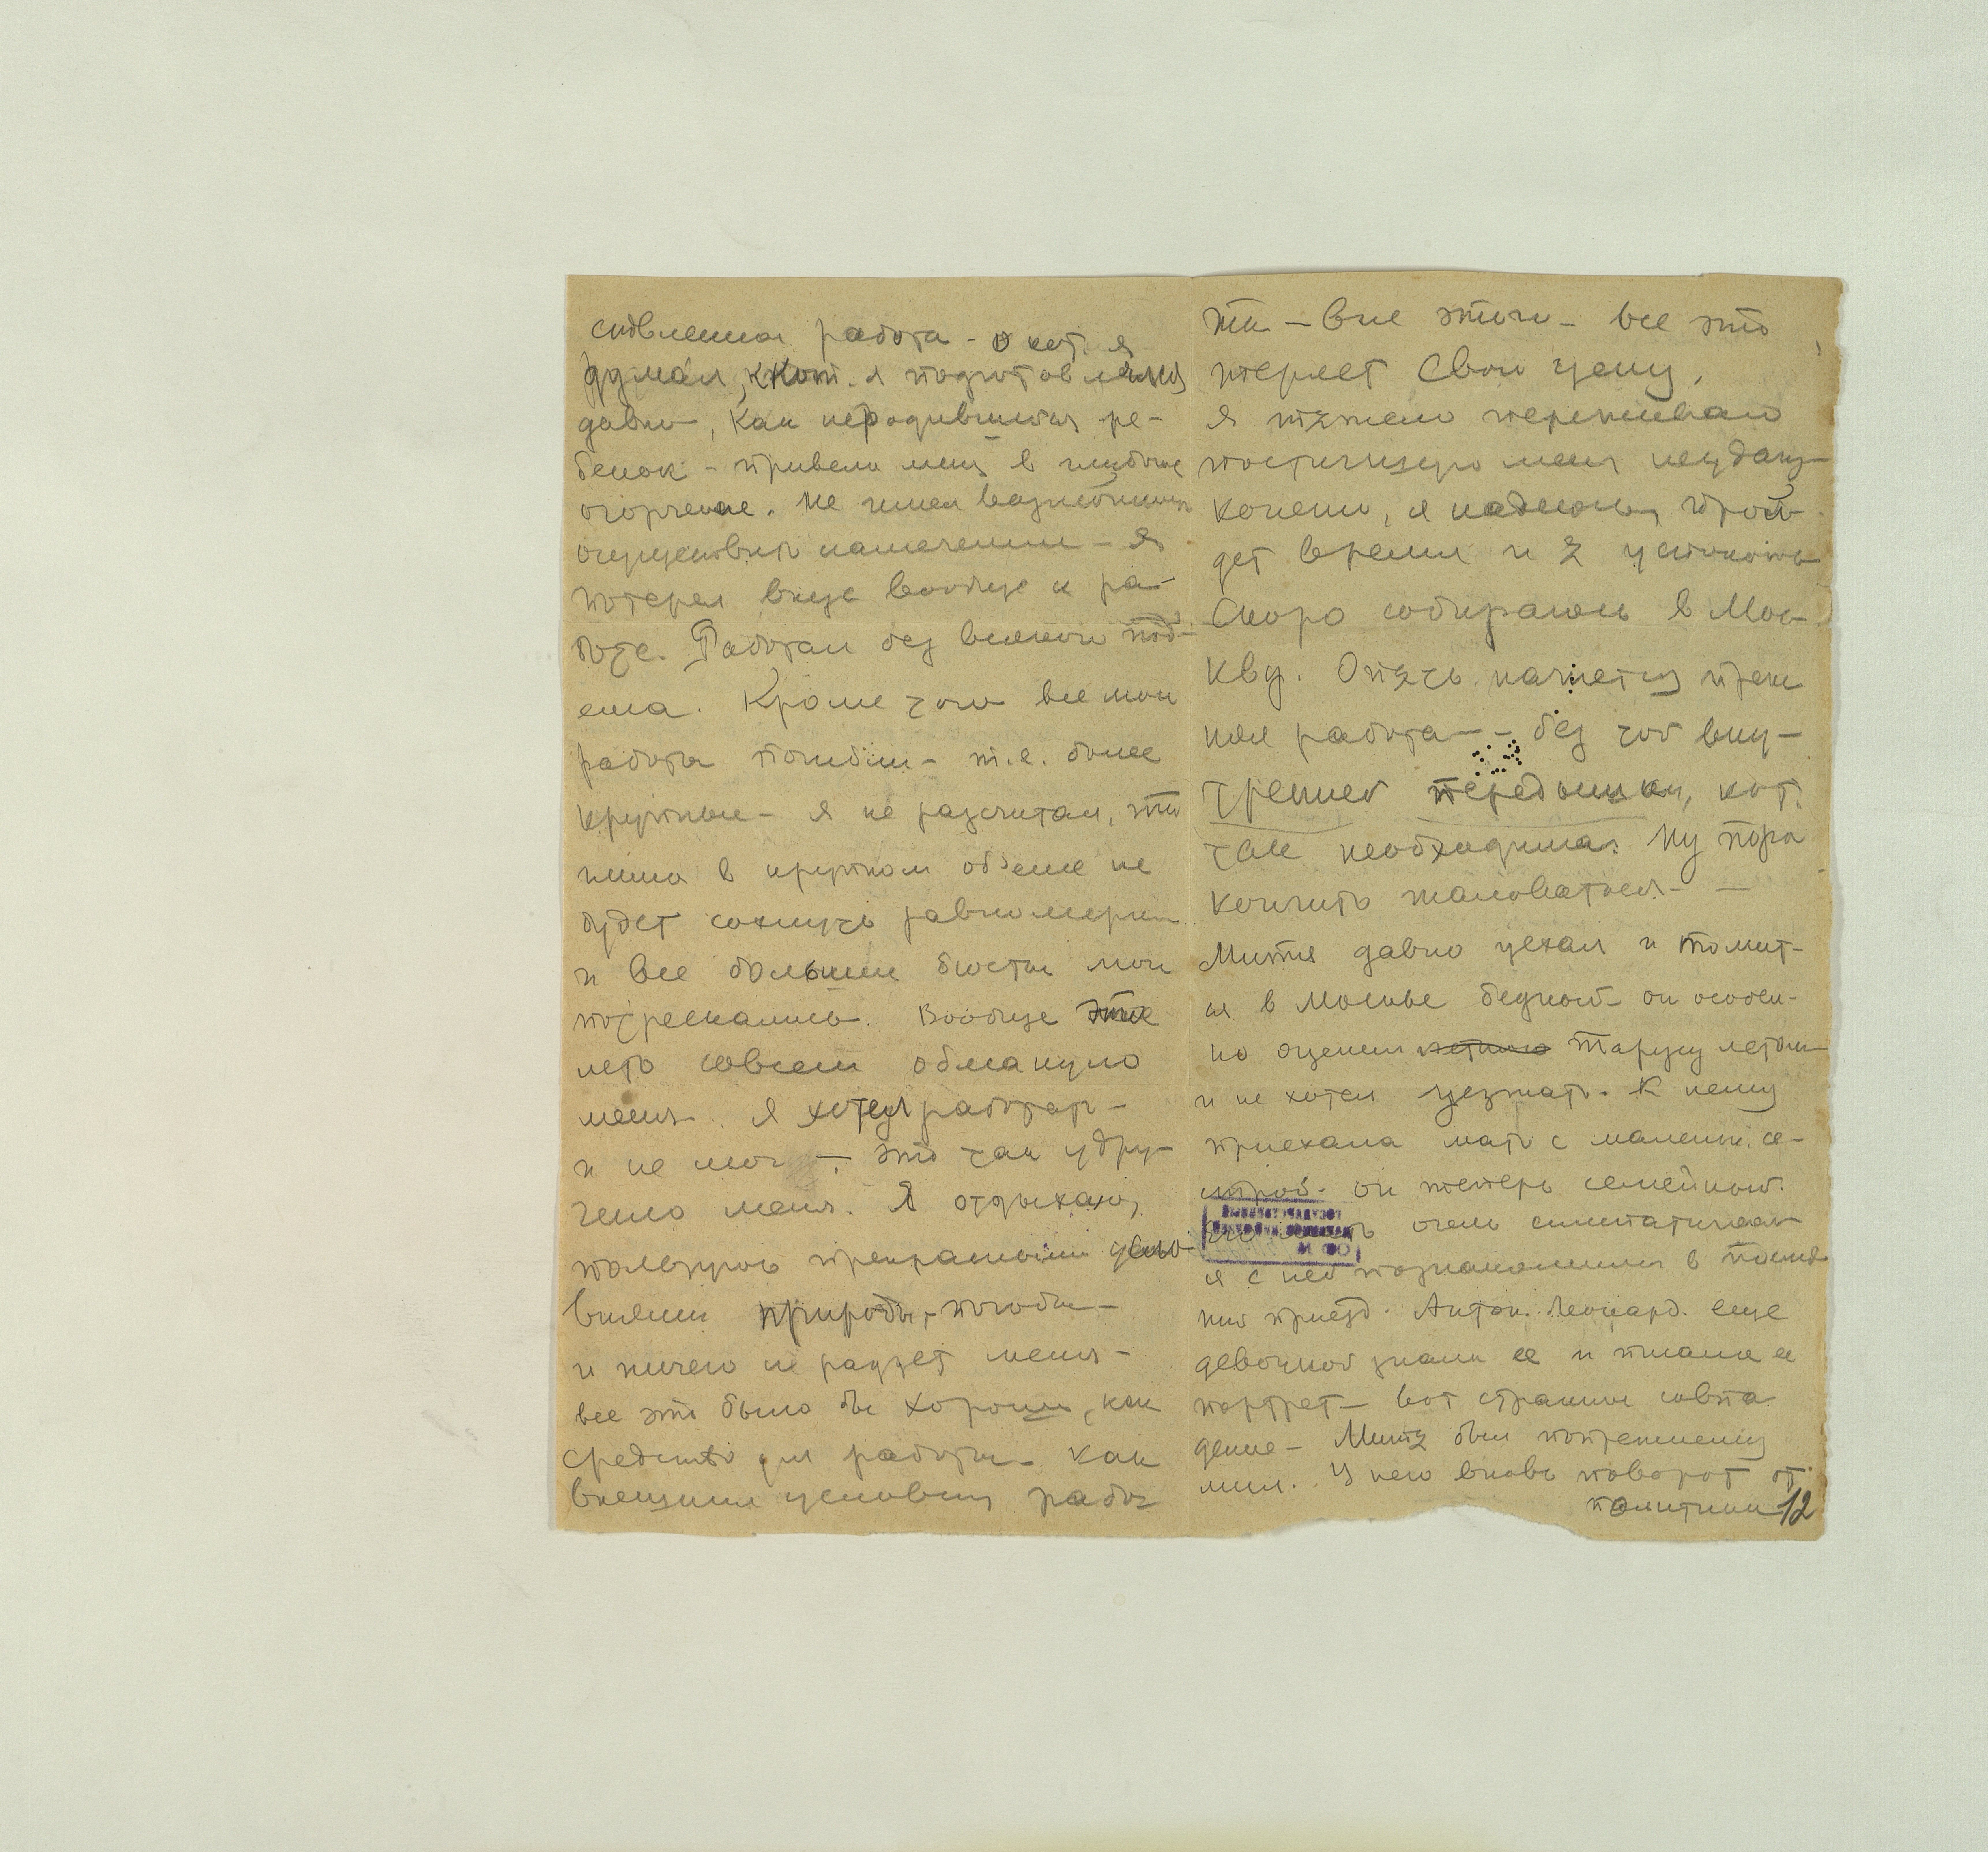 сновленная работа - о кот. я
думал, к кот. я подготовлялся
давно, как неродившийся ре-
бенок - привели меня в глубокое
огорчение. Не имея возможности
осуществить намечения - я
потерял вкус вообще к ра-
боте. Работал без всякого под-
ема. Кроме того все мои
работы погибли - т.е. более
крупные - я не разсчитал, что
глина в крупном объеме не
будет сохнуть равномерно
и все большие бюсты мои
потрескались. Вообще это
лето совсем обмануло
меня. Я хотел работать -
и не мог - это так удру-
чило меня. Я отдыхаю,
пользуюсь прекрасными усло-
виями природы, погоды -
и ничего не радует меня -
все это было бы хорошо, как
средство для работы - как
внешния условия рабо-
ты - вне этого - все это
теряет свою цену.
Я тяжело переживаю
постигшую меня неудачу
конечно, я надеюсь, прой-
дет время и я успокоюсь
Скоро собираюсь в Мос-
кву. Опять начнется преж
няя работа - - без той вну-
тренней передышки, кот.
так необходима. Ну пора
кончить жаловаться - -
Митя давно уехал и томит-
ся в Москве бедной - он особен-
но оценил летнюю Тарусу летом
и не хотел уезжать. К нему
приехала мать с маленьк. се-
строй - он теперь семейный.
его мать очень симпатичная
я с ней познакомился в послед
ний приезд. Антон. Леонард. еще
девочкой знали ее и писали ее
портрет - вот странное совпа-
дение - Митя был попрежнему
мил. У него вновь поворот от
политики 12